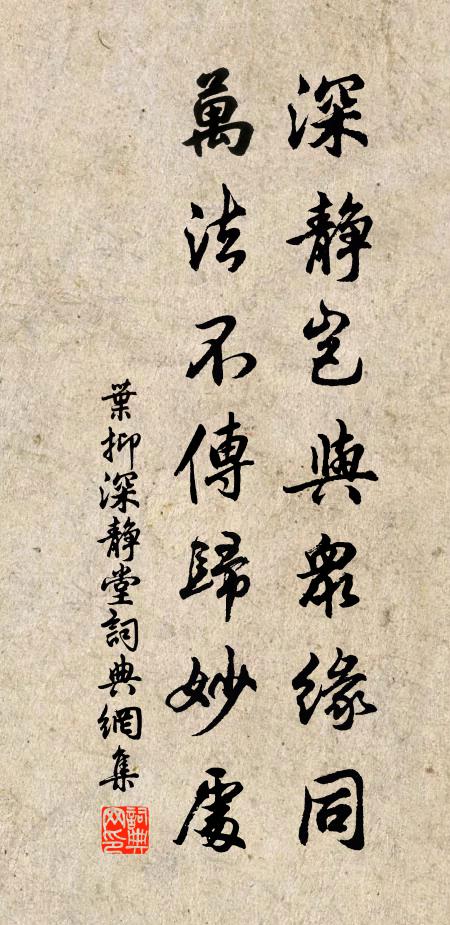 深静豈與衆緣同
萬法不傳歸妙處
葉抑深静堂詞典網集
詞典網印